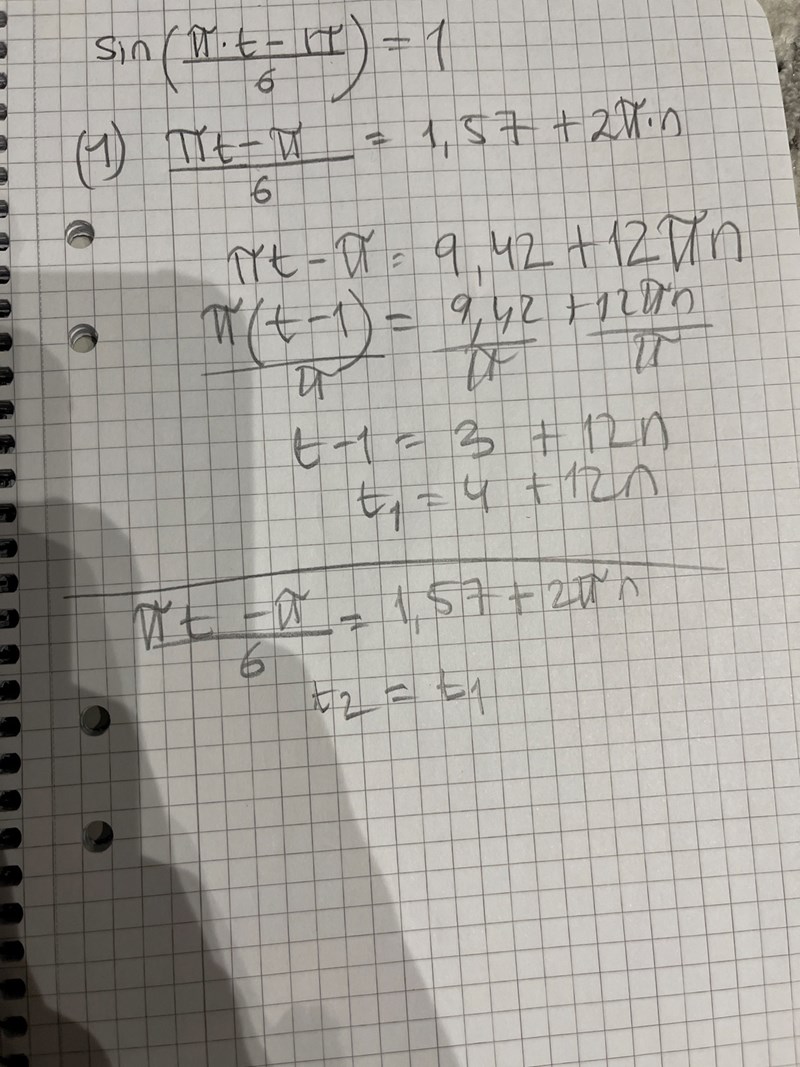 sin(π·t-π/6) = 1
(1) πt-π/6 = 1,57 + 2π·n
πt-π = 9,42 + 12πn
π(t-1)/π = 9,42/π + 12πn/π
t-1 = 3 + 12n
t₁ = 4 + 12n
πt -π/6 = 1,57 + 2πn
t₂ = t₁